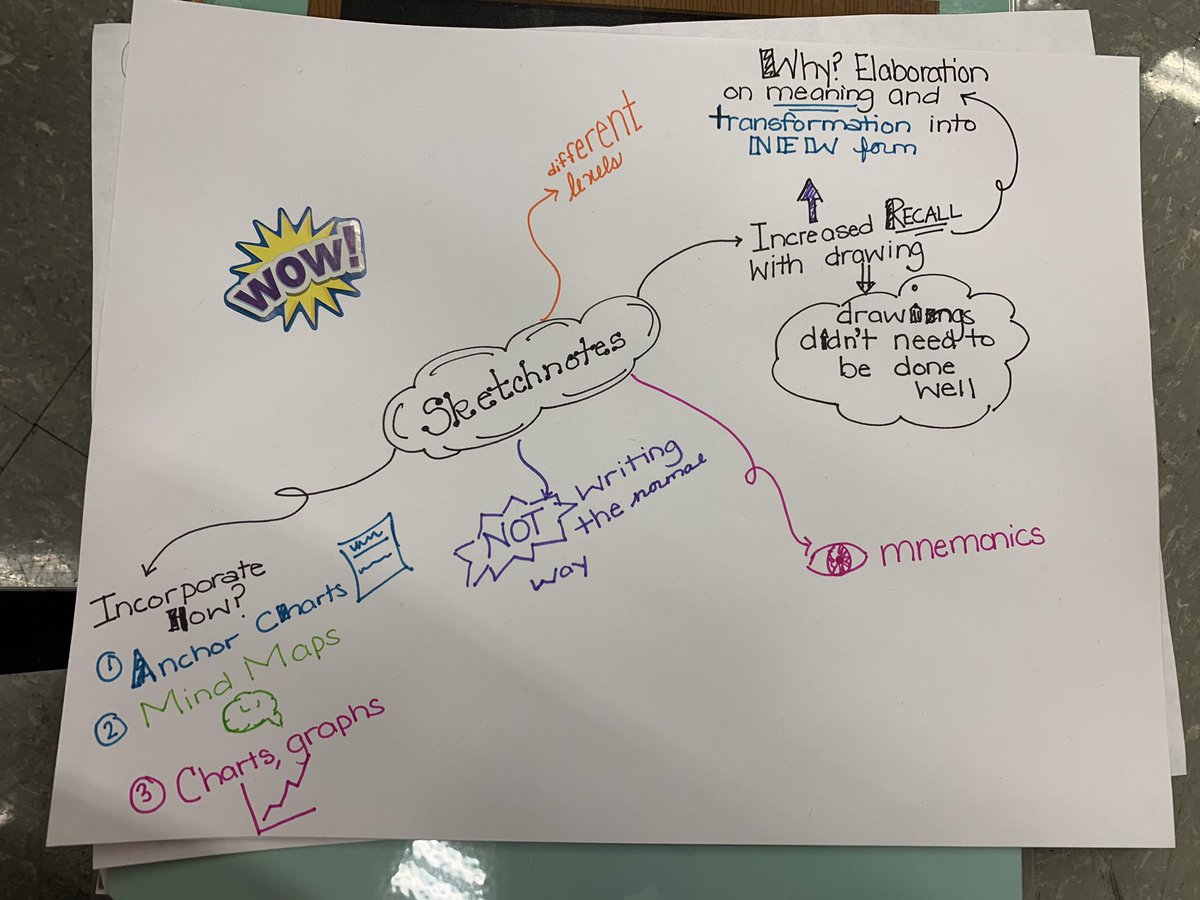 Why? Elaboration
on meaning and
transformation into
NEW form
Increased RECALL
with drawing
drawings
didn't need to
be done
well
different
levels
WOW!
Sketchnotes
NOT writing
the normal
way
mnemonics
Incorporate
How?
① Anchor Charts
② Mind Maps
③ Charts, graphs